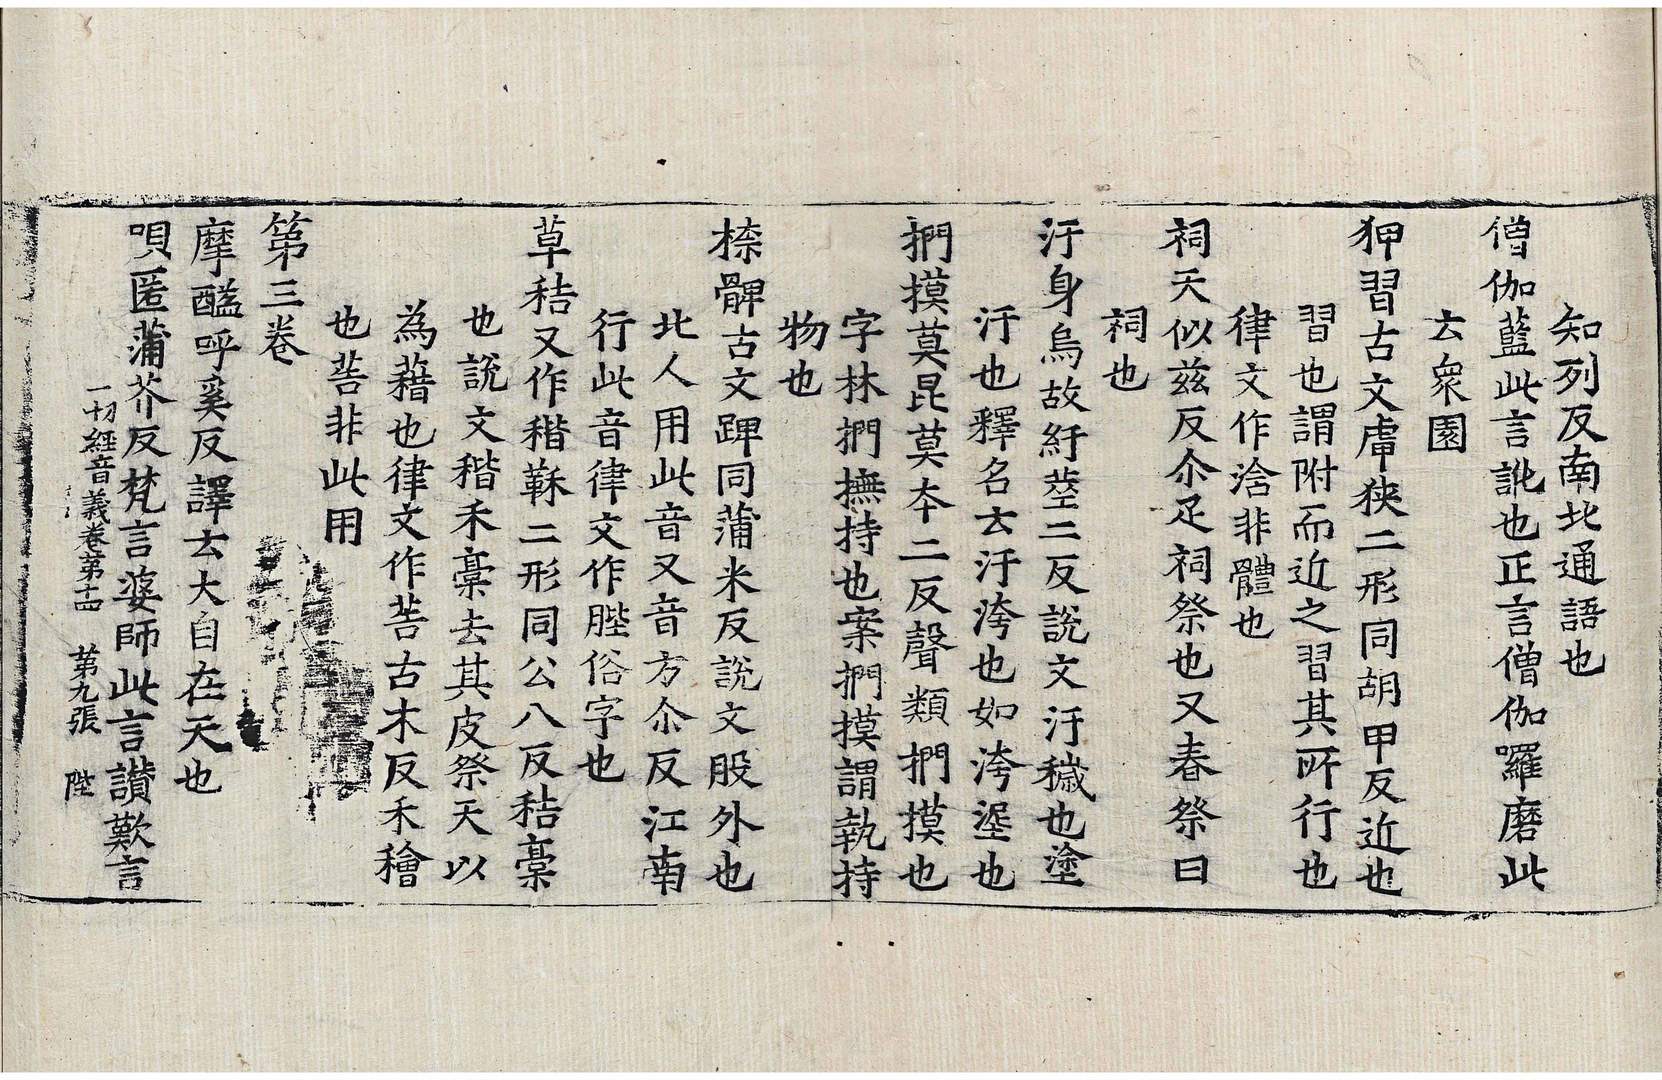 知列反南北通語也
僧伽藍此言訛也正言僧伽囉磨此
云衆園
狎習古文庘狹二形同胡甲反近也
習也謂附而近之習其所行也
律文作洽非體也
祠天似兹反尒疋祠祭也又春祭曰
祠也
汙身烏故紆莝二反說文汙穢也塗
汙也釋名云汙洿也如洿塗也
捫摸莫昆莫本二反聲類捫摸也
字林捫撫持也案捫摸謂執持
物也
㮈髀古文踔同蒲米反說文股外也
北人用此音又音方尒反江南
行此音律文作䏶俗字也
草秸又作稭䅥二形同公八反秸槀
也說文稭禾槀去其皮祭天以
為藉也律文作䓘古木反禾䅥
也䓘非此用
第三卷
摩醯呼奚反譯云大自在天也
唄匿蒲芥反梵言婆師此言讃歎言
一切經音義卷第十四 第九張 陛